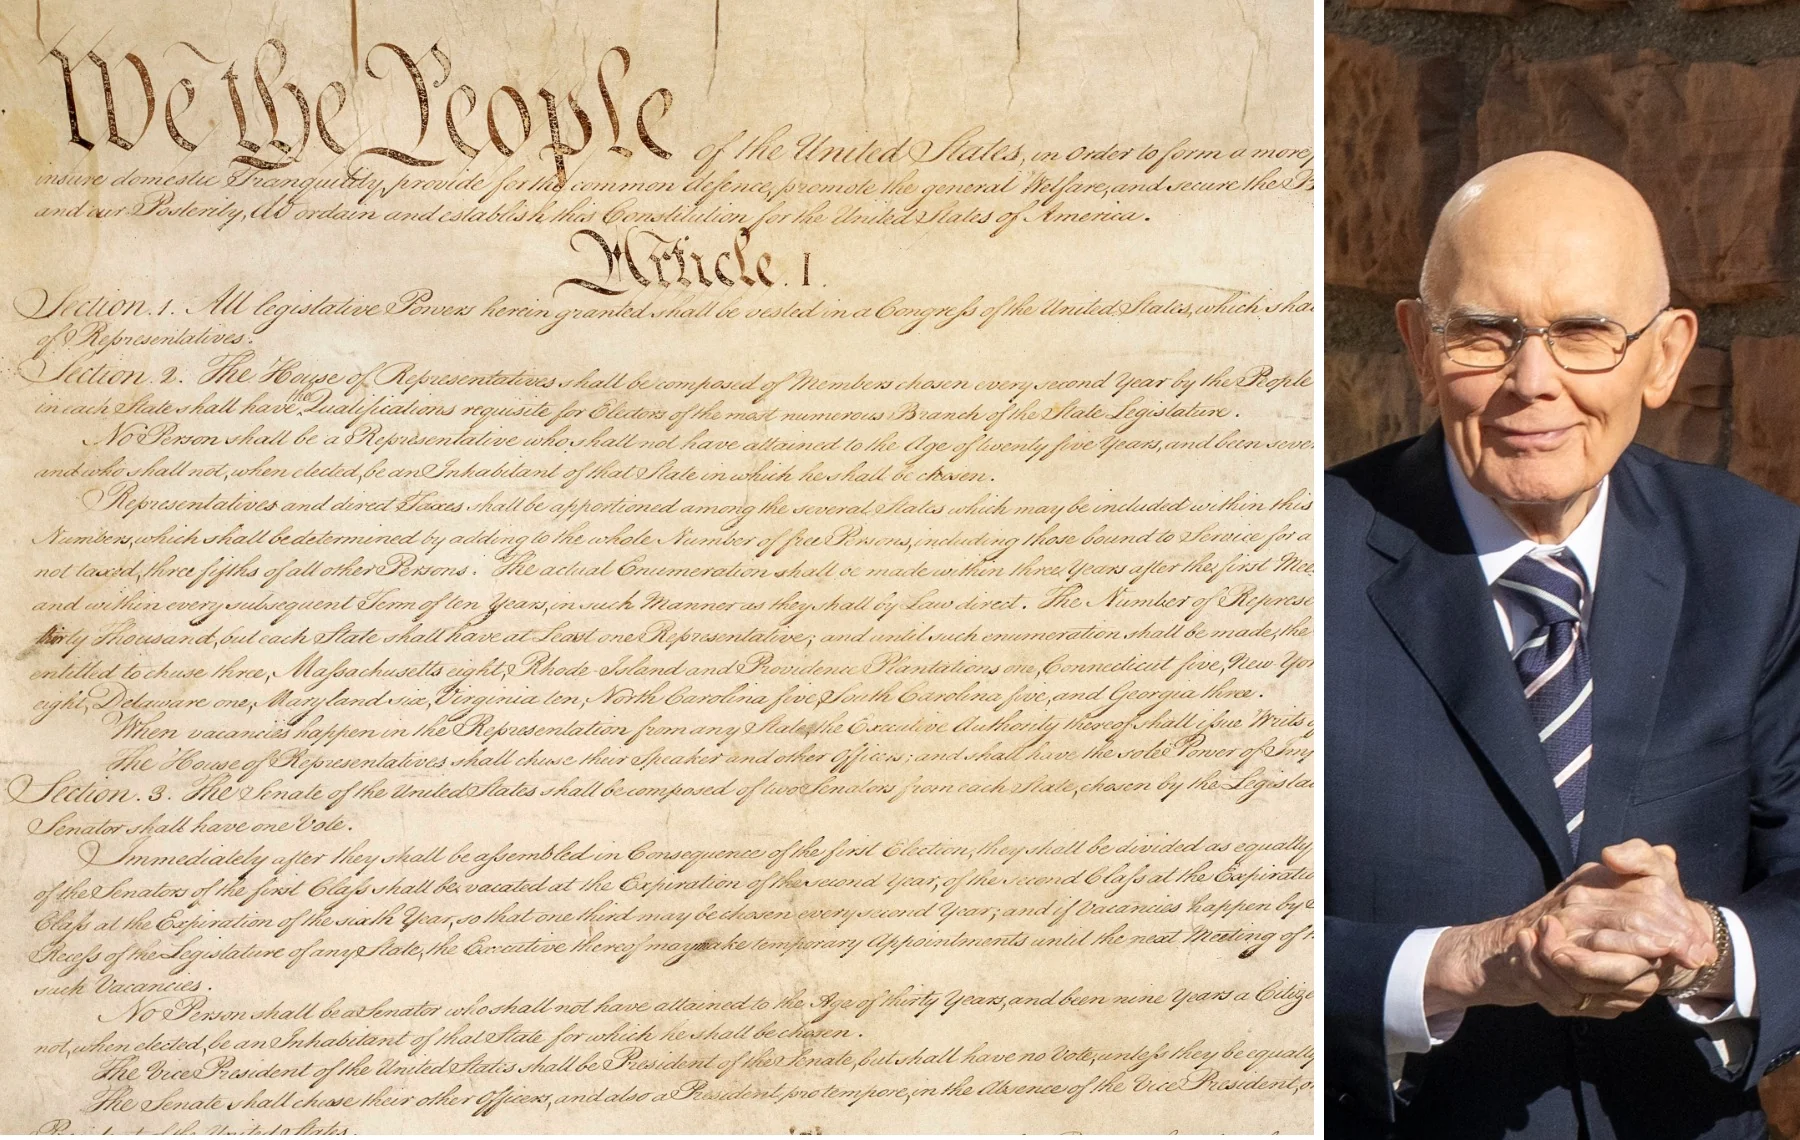 We the People of the United States, in Order to form a more
insure domestic Tranquility, provide for the common defence, promote the general Welfare, and secure the
and our Posterity, do ordain and establish this Constitution for the United States of America.
Article. I.
Section. 1. All legislative Powers herein granted shall be vested in a Congress of the United States, which sha
of Representatives.
Section. 2. The House of Representatives shall be composed of Members chosen every second Year by the People
in each State shall have the Qualifications requisite for Electors of the most numerous Branch of the State Legislature.
No Person shall be a Representative who shall not have attained to the Age of twenty five Years, and been seve
and who shall not, when elected, be an Inhabitant of that State in which he shall be chosen.
Representatives and direct Taxes shall be apportioned among the several States which may be included within this
Numbers, which shall be determined by adding to the whole Number of free Persons, including those bound to Service for a
not taxed, three fifths of all other Persons. The actual Enumeration shall be made within three Years after the first Mee
and within every subsequent Term of ten Years, in such Manner as they shall by Law direct. The Number of Represe
thirty Thousand, but each State shall have at Least one Representative; and until such enumeration shall be made, the
entitled to chuse three, Massachusetts eight, Rhode-Island and Providence Plantations one, Connecticut five, New-Yor
eight, Delaware one, Maryland six, Virginia ten, North Carolina five, South Carolina five, and Georgia three.
When vacancies happen in the Representation from any State, the Executive Authority thereof shall issue Writs
The House of Representatives shall chuse their Speaker and other Officers; and shall have the sole Power of Imp
Section. 3. The Senate of the United States shall be composed of two Senators from each State, chosen by the Legisla
Senator shall have one Vote.
Immediately after they shall be assembled in Consequence of the first Election, they shall be divided as equally
of the Senators of the first Class shall be vacated at the Expiration of the second Year, of the second Class at the Expiratio
Class at the Expiration of the sixth Year, so that one third may be chosen every second Year; and if Vacancies happen by
Recess of the Legislature of any State, the Executive thereof may make temporary Appointments until the next Meeting of
such Vacancies.
No Person shall be a Senator who shall not have attained to the Age of thirty Years, and been nine Years a Citize
not, when elected, be an Inhabitant of that State for which he shall be chosen.
The Vice President of the United States shall be President of the Senate, but shall have no Vote, unless they be equally
The Senate shall chuse their other Officers, and also a President pro tempore, in the Absence of the Vice President, or
President of the United States.